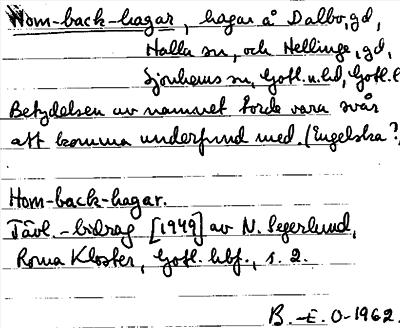 Hom-back-hagar, hagar å Dalbo, gd,
Halla sn, och Hellinge, gd,
Sjonhems sn, Gotl. n. hd, Gotl. l
Betydelsen av namnet torde vara svår
att komma underfund med. (Engelska?)
Hom-back-hagar.
Tävl.-bidrag [1949] av N. Segerlund,
Roma Kloster, Gotl. hbf., s. 2.
B.-E. O-1962.